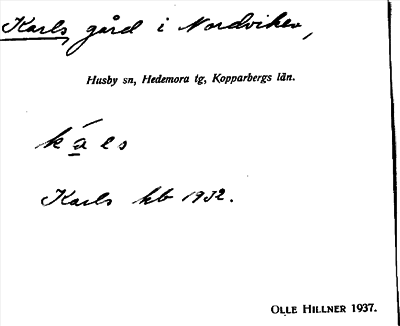 Karls, gård i Nordviken,
Husby sn, Hedemora tg, Kopparbergs län.
ká̱ls
Karls hb 1932.
OLLE HILLNER 1937.